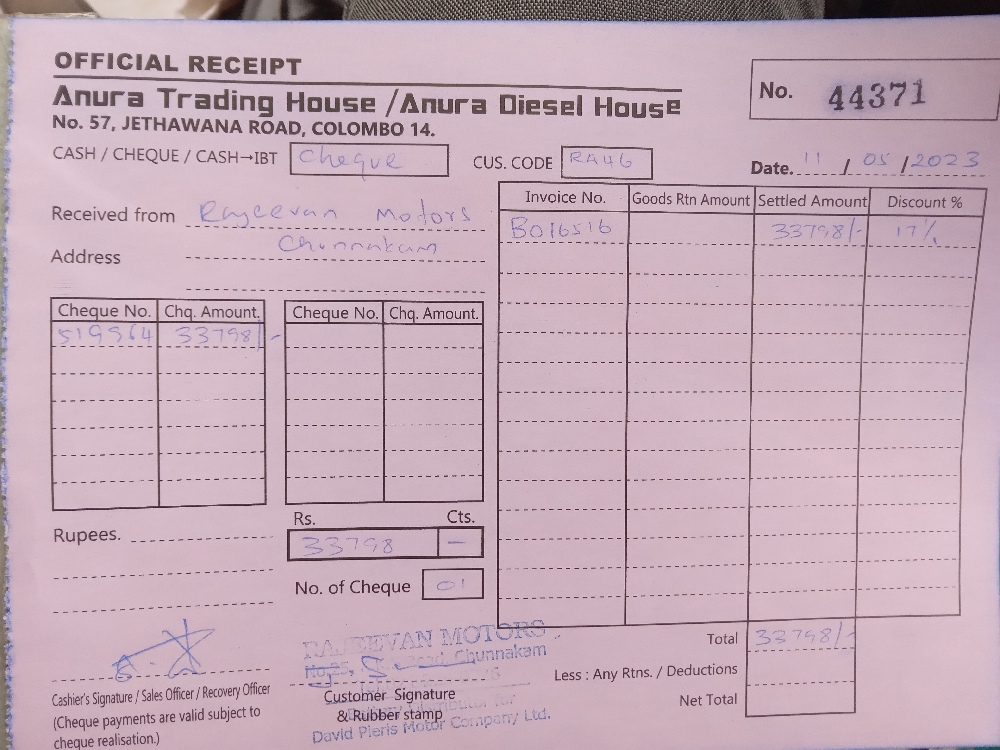 OFFICIAL RECEIPT
Anura Trading House / Anura Diesel House
No. 57, JETHAWANA ROAD, COLOMBO 14.
No. 44371
CASH / CHEQUE / CASH→IBT Cheque CUS. CODE RA46 Date. 11 / 05 / 2023
Received from Rajeevan Motors
Address Chunnakam
Invoice No. Goods Rtn Amount Settled Amount Discount %
B016516 33798/- 17%
Cheque No. Chq. Amount. Cheque No. Chq. Amount.
519964 33798/-
Rupees.
Rs. Cts.
33798 —
No. of Cheque 01
Total 33798/-
Less : Any Rtns. / Deductions
Net Total
RAJEEVAN MOTORS
Chunnakam
Cashier's Signature / Sales Officer / Recovery Officer
(Cheque payments are valid subject to
cheque realisation.)
Customer Signature
& Rubber stamp
David Pieris Motor Company Ltd.